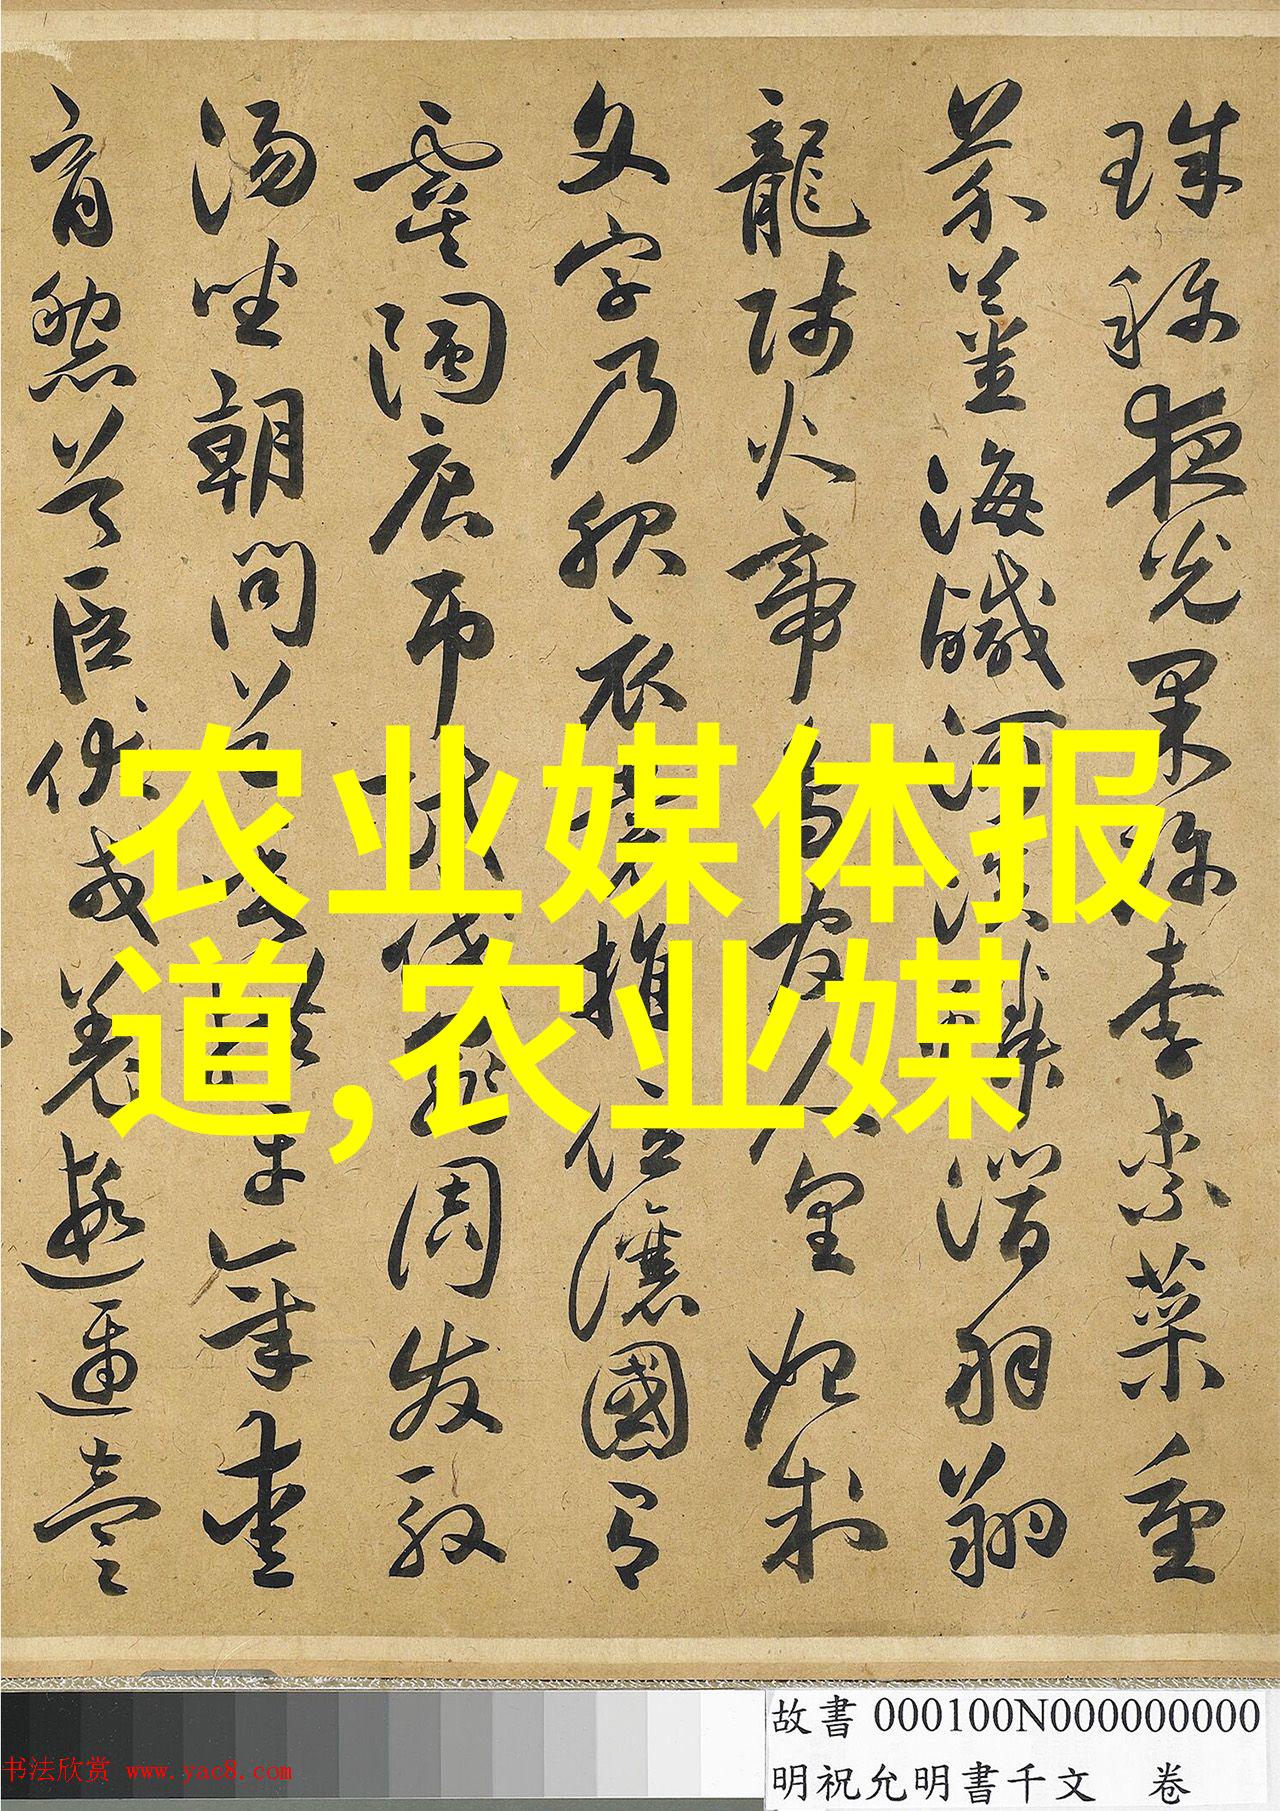 珠称夜光果珍李柰菜重
芥薑海鹹河淡鱗潛羽翔
龍師火帝鳥官人皇始制
文字乃服衣裳推位讓國有
虞陶唐弔民伐罪周發殷
湯坐朝問道垂拱平章愛
育黎首臣伏戎羌遐邇壹
农业媒体报
道,农业媒
故書 000100N000000000
明祝允明書千文 卷
书法欣赏 www.yac8.com